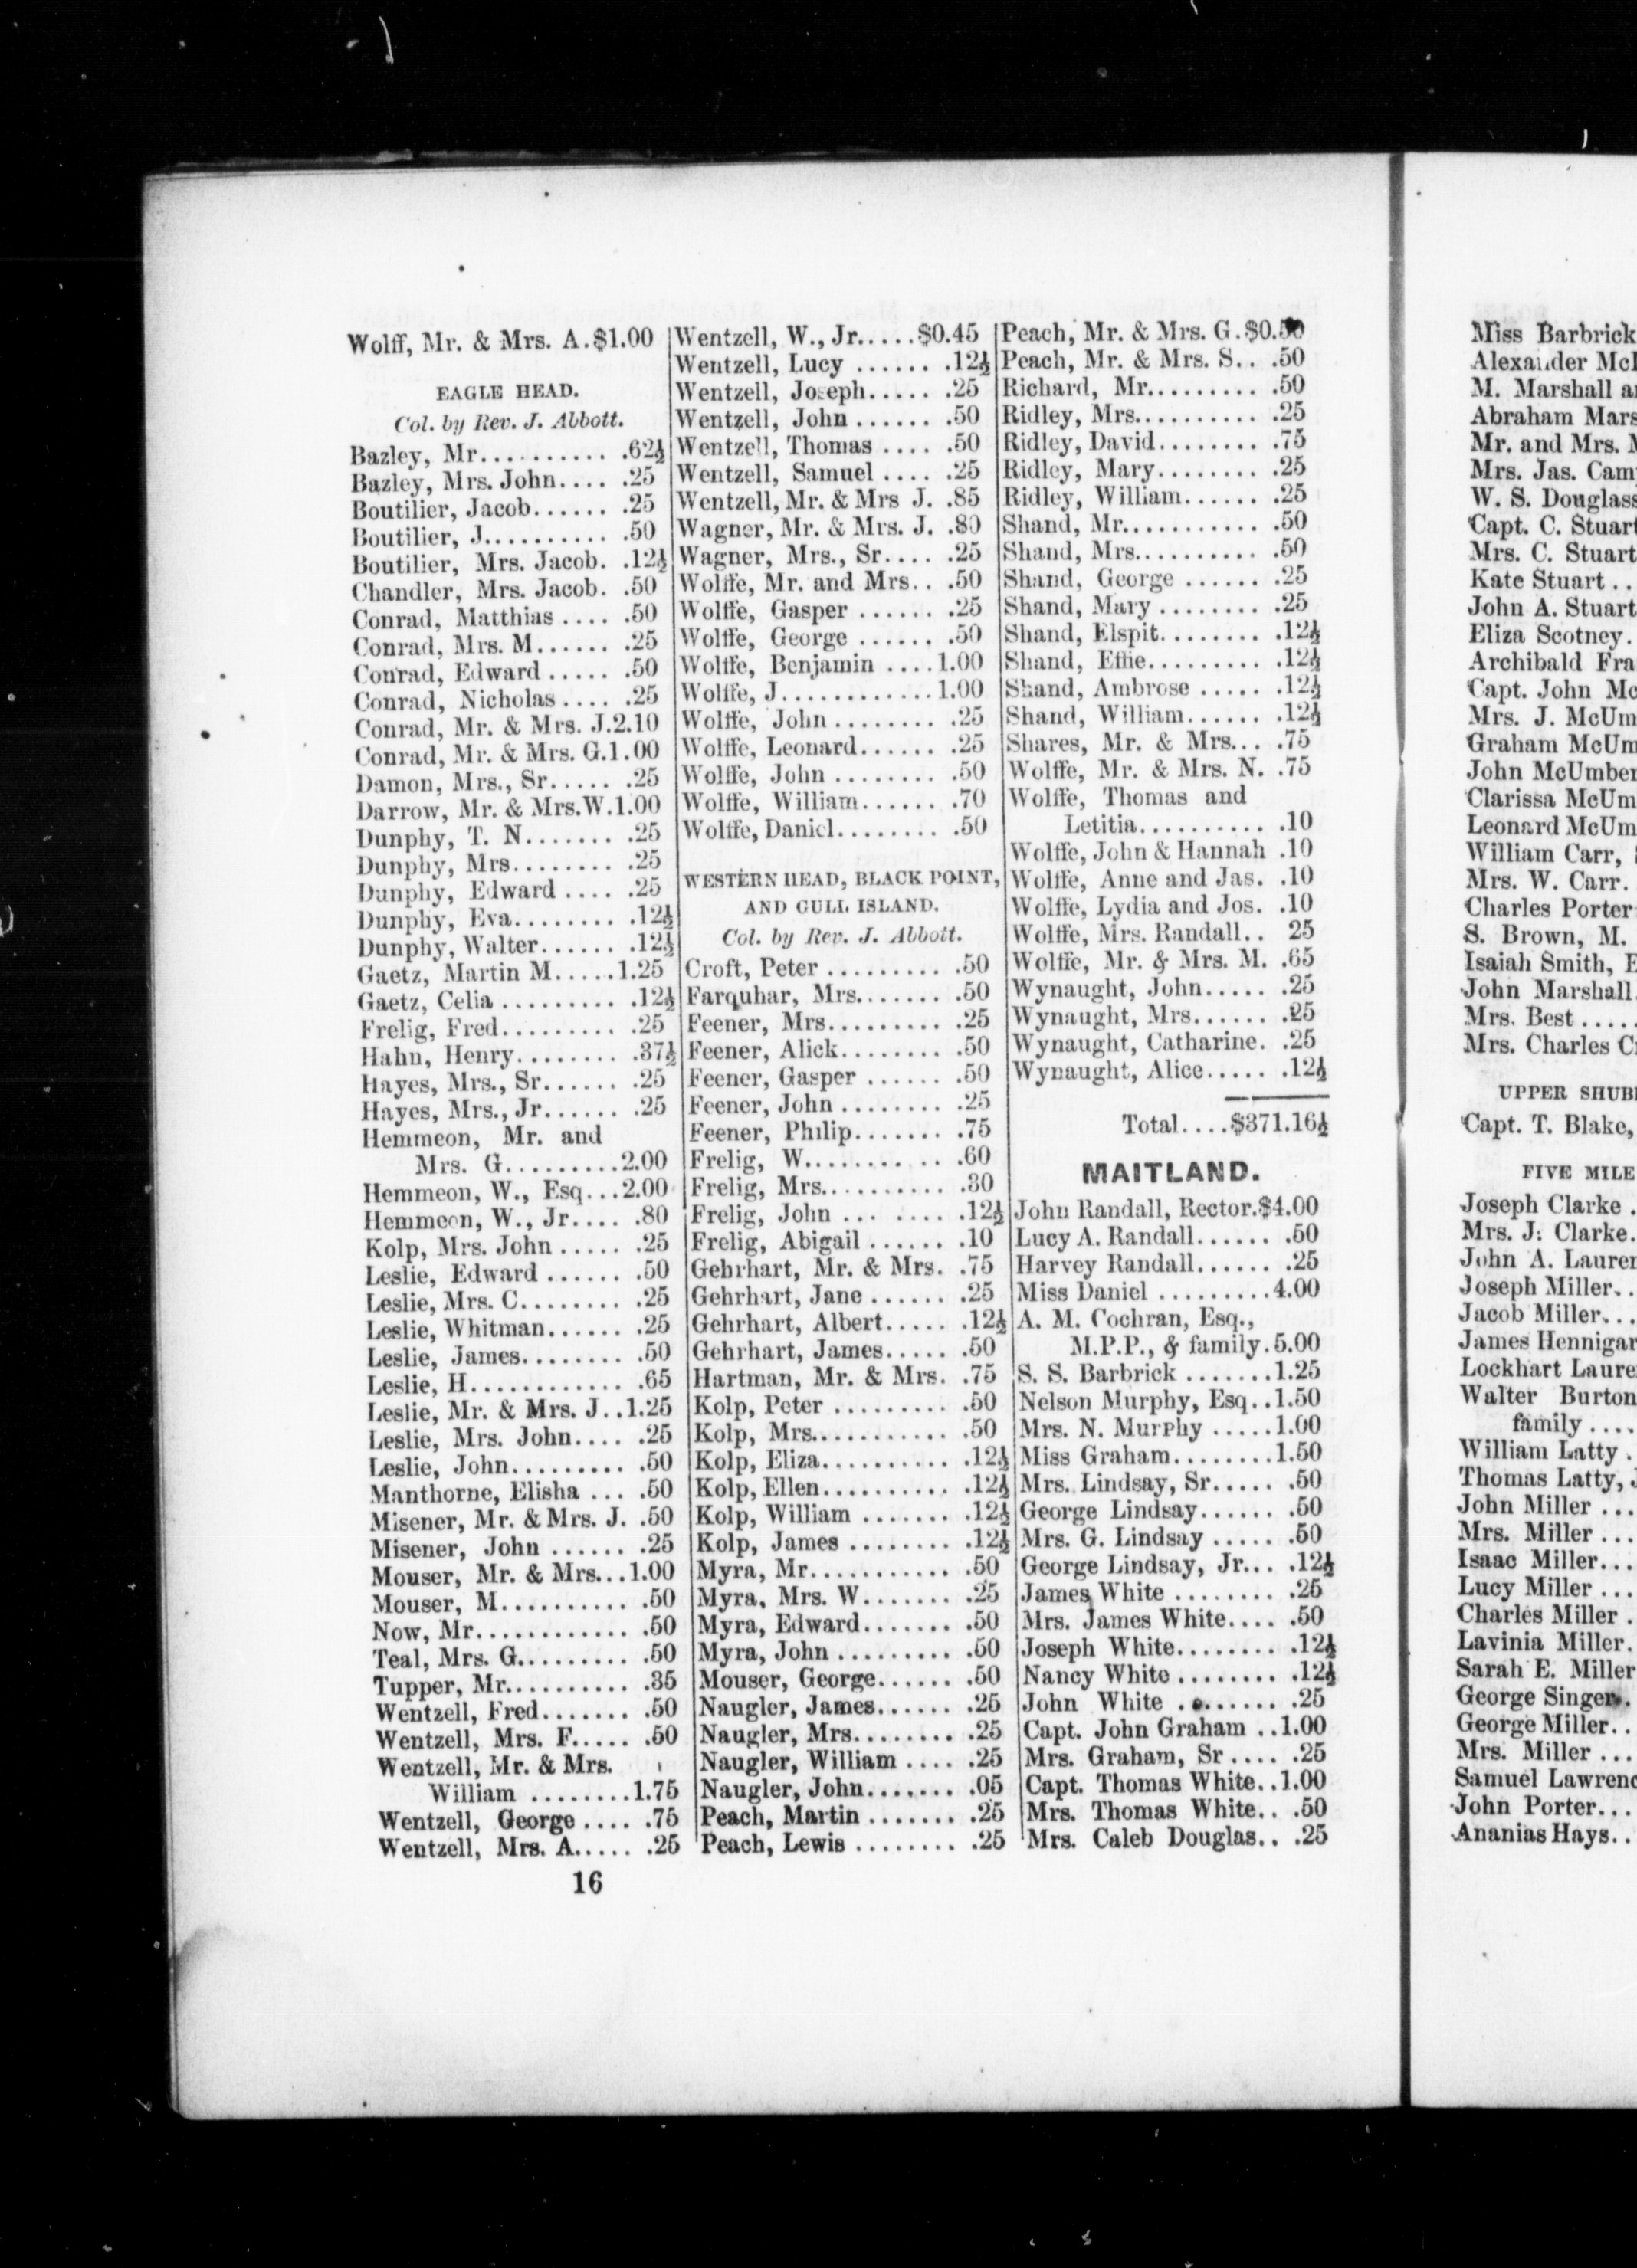 Wolff, Mr. & Mrs. A.$1.00
EAGLE HEAD.
Col. by Rev. J. Abbott.
Bazley, Mr.......... .62½
Bazley, Mrs. John.... .25
Boutilier, Jacob...... .25
Boutilier, J.......... .50
Boutilier, Mrs. Jacob. .12½
Chandler, Mrs. Jacob. .50
Conrad, Matthias .... .50
Conrad, Mrs. M...... .25
Conrad, Edward ..... .50
Conrad, Nicholas .... .25
Conrad, Mr. & Mrs. J.2.10
Conrad, Mr. & Mrs. G.1.00
Damon, Mrs., Sr..... .25
Darrow, Mr. & Mrs.W.1.00
Dunphy, T. N....... .25
Dunphy, Mrs........ .25
Dunphy, Edward .... .25
Dunphy, Eva........ .12½
Dunphy, Walter...... .12½
Gaetz, Martin M.....1.25
Gaetz, Celia ......... .12½
Frelig, Fred......... .25
Hahn, Henry........ .37½
Hayes, Mrs., Sr...... .25
Hayes, Mrs., Jr...... .25
Hemmeon, Mr. and
Mrs. G.........2.00
Hemmeon, W., Esq...2.00
Hemmeon, W., Jr.... .80
Kolp, Mrs. John ..... .25
Leslie, Edward ...... .50
Leslie, Mrs. C........ .25
Leslie, Whitman...... .25
Leslie, James........ .50
Leslie, H............ .65
Leslie, Mr. & Mrs. J..1.25
Leslie, Mrs. John.... .25
Leslie, John......... .50
Manthorne, Elisha ... .50
Misener, Mr. & Mrs. J. .50
Misener, John ...... .25
Mouser, Mr. & Mrs...1.00
Mouser, M.......... .50
Now, Mr............ .50
Teal, Mrs. G......... .50
Tupper, Mr.......... .35
Wentzell, Fred....... .50
Wentzell, Mrs. F..... .50
Wentzell, Mr. & Mrs.
William ........1.75
Wentzell, George .... .75
Wentzell, Mrs. A..... .25
Wentzell, W., Jr.....$0.45
Wentzell, Lucy ...... .12½
Wentzell, Joseph..... .25
Wentzell, John ...... .50
Wentzell, Thomas .... .50
Wentzell, Samuel .... .25
Wentzell, Mr. & Mrs J. .85
Wagner, Mr. & Mrs. J. .80
Wagner, Mrs., Sr.... .25
Wolffe, Mr. and Mrs.. .50
Wolffe, Gasper ...... .25
Wolffe, George ...... .50
Wolffe, Benjamin ....1.00
Wolffe, J............1.00
Wolffe, John ........ .25
Wolffe, Leonard...... .25
Wolffe, John ........ .50
Wolffe, William...... .70
Wolffe, Daniel........ .50
WESTERN HEAD, BLACK POINT,
AND GULL ISLAND.
Col. by Rev. J. Abbott.
Croft, Peter ......... .50
Farquhar, Mrs....... .50
Feener, Mrs......... .25
Feener, Alick........ .50
Feener, Gasper ...... .50
Feener, John ........ .25
Feener, Philip....... .75
Frelig, W........... .60
Frelig, Mrs.......... .30
Frelig, John ... ..... .12½
Frelig, Abigail ...... .10
Gehrhart, Mr. & Mrs. .75
Gehrhart, Jane ...... .25
Gehrhart, Albert..... .12½
Gehrhart, James..... .50
Hartman, Mr. & Mrs. .75
Kolp, Peter ......... .50
Kolp, Mrs........... .50
Kolp, Eliza.......... .12½
Kolp, Ellen.......... .12½
Kolp, William ....... .12½
Kolp, James ........ .12½
Myra, Mr........... .50
Myra, Mrs. W....... .25
Myra, Edward....... .50
Myra, John ......... .50
Mouser, George...... .50
Naugler, James...... .25
Naugler, Mrs........ .25
Naugler, William .... .25
Naugler, John....... .05
Peach, Martin ....... .25
Peach, Lewis ........ .25
Peach, Mr. & Mrs. G.$0.50
Peach, Mr. & Mrs. S.. .50
Richard, Mr......... .50
Ridley, Mrs.......... .25
Ridley, David........ .75
Ridley, Mary........ .25
Ridley, William...... .25
Shand, Mr........... .50
Shand, Mrs.......... .50
Shand, George ...... .25
Shand, Mary ........ .25
Shand, Elspit........ .12½
Shand, Effie......... .12½
Shand, Ambrose ..... .12½
Shand, William...... .12½
Shares, Mr. & Mrs... .75
Wolffe, Mr. & Mrs. N. .75
Wolffe, Thomas and
Letitia.......... .10
Wolffe, John & Hannah .10
Wolffe, Anne and Jas. .10
Wolffe, Lydia and Jos. .10
Wolffe, Mrs. Randall.. 25
Wolffe, Mr. & Mrs. M. .65
Wynaught, John..... .25
Wynaught, Mrs...... .25
Wynaught, Catharine. .25
Wynaught, Alice..... .12½
Total....$371.16½
MAITLAND.
John Randall, Rector.$4.00
Lucy A. Randall...... .50
Harvey Randall...... .25
Miss Daniel .........4.00
A. M. Cochran, Esq.,
M.P.P., & family.5.00
S. S. Barbrick .......1.25
Nelson Murphy, Esq..1.50
Mrs. N. Murphy .....1.00
Miss Graham........1.50
Mrs. Lindsay, Sr..... .50
George Lindsay...... .50
Mrs. G. Lindsay ..... .50
George Lindsay, Jr... .12½
James White ........ .25
Mrs. James White.... .50
Joseph White........ .12½
Nancy White ........ .12½
John White ........ .25
Capt. John Graham ..1.00
Mrs. Graham, Sr .... .25
Capt. Thomas White..1.00
Mrs. Thomas White.. .50
Mrs. Caleb Douglas.. .25
16
Miss Barbrick
Alexander
M. Marshall
Abraham
Mr. and Mrs.
Mrs. Jas.
W. S. Douglass
Capt. C. Stuart
Mrs. C. Stuart
Kate Stuart ..
John A. Stuart
Eliza Scotney.
Archibald
Capt. John
Mrs. J.
Graham
John McUmber
Clarissa
Leonard
William Carr,
Mrs. W. Carr.
Charles Porter
S. Brown, M.
Isaiah Smith,
John Marshall.
Mrs. Best .....
Mrs. Charles
UPPER
Capt. T. Blake,
FIVE MILE
Joseph Clarke .
Mrs. J. Clarke.
John A.
Joseph Miller..
Jacob Miller...
James Hennigar
Lockhart
Walter Burton
family ....
William Latty .
Thomas Latty,
John Miller ...
Mrs. Miller ...
Isaac Miller...
Lucy Miller ...
Charles Miller .
Lavinia Miller.
Sarah E. Miller
George Singer.
George Miller..
Mrs. Miller ...
Samuel
John Porter...
Ananias Hays..